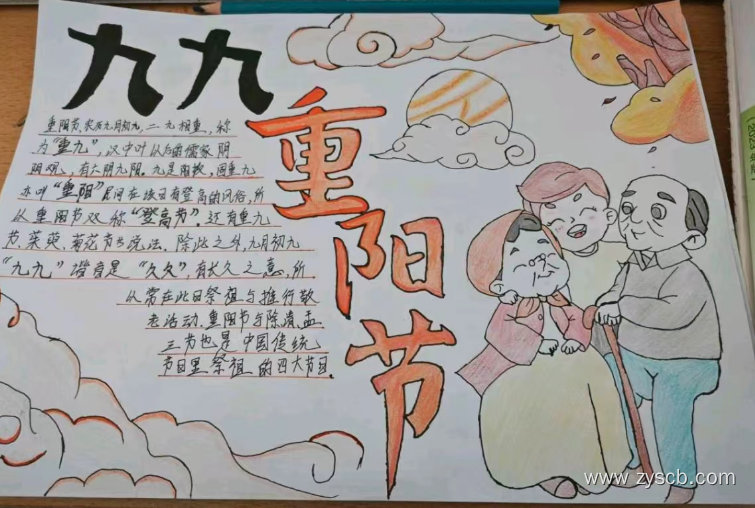 九九
重阳节
重阳节,农历九月初九,二九相重,称
为"重九",汉中叶以后的儒家阴
阳观,有六阴九阳。九是阳数,固重九
亦叫"重阳"民间在该日有登高的风俗,所
以重阳节又称"登高节"。还有重九
节、茱萸、菊花节等说法。除此之外,九月初九
"九九"谐音是"久久",有长久之意,所
以常在此日祭祖与推行敬
老活动。重阳节与除、清、盂
三节也是中国传统
节日里祭祖的四大节日。
www.zyscb.com